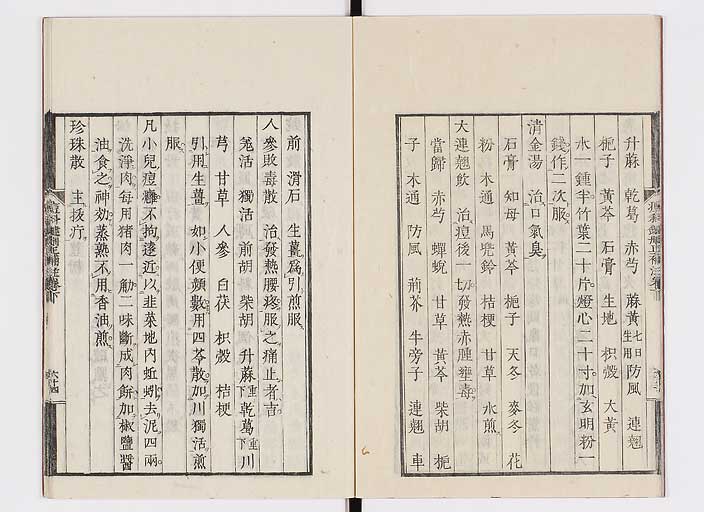 升蔴 乾葛 赤芍 蔴黃七日生用 防風 連翹
梔子 黃芩 石膏 生地 枳殼 大黃
水一鍾半竹葉二十片燈心二十寸加玄明粉一
錢作二次服
清金湯 治口氣臭
石膏 知母 黃芩 梔子 天冬 麥冬 花
粉 木通 馬兜鈴 桔梗 甘草 水煎
大連翹飲 治痘後一切發熱赤腫壅毒
當歸 赤芍 蟬蛻 甘草 黃芩 柴胡 梔
子 木通 防風 荊芥 牛旁子 連翹 車
前 滑石 生薑爲引煎服
人參敗毒散 治發熱腰疼服之痛止者吉
羗活 獨活 前胡 柴胡 升蔴重下 乾葛重下 川
芎 甘草 人參 白茯 枳殼 桔梗
引用生薑 如小便頻數用四苓散加川獨活煎
服
凡小兒痘癰不拘遠近以韭菜地內蚯蚓去泥四兩
洗淨肉每用猪肉一觔二味斷成肉餅加椒鹽醬
油食之神効蒸熟不用香油煎
珍珠散 主拔疔
六十四